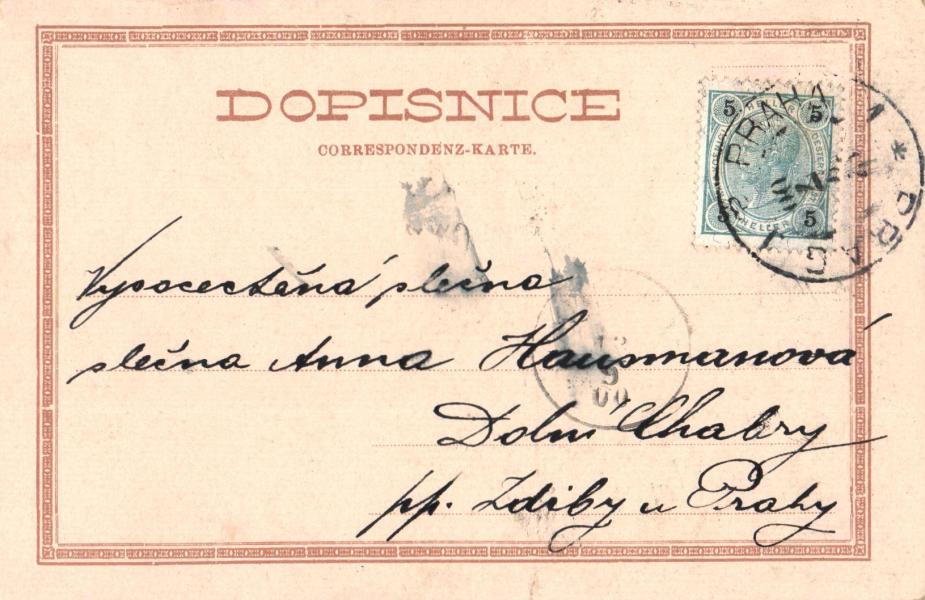 DOPISNICE
CORRESPONDENZ-KARTE.
5 HELLER 5
HELLER 5
PRAHA 1 * PRAG 1
Vysocectěná slečna
slečna Anna Hausmanová
Dolní Chabry
pp. Zdiby u Prahy